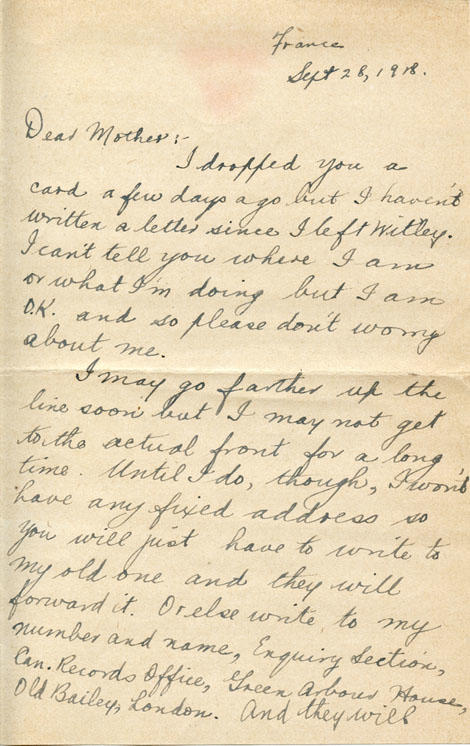 France
Sept 28, 1918.
Dear Mother:-
I dropped you a
card a few days ago but I haven't
written a letter since I left Witley.
I can't tell you where I am
or what I'm doing but I am
O.K. and so please don't worry
about me.
I may go farther up the
line soon but I may not get
to the actual front for a long
time. Until I do, though, I won't
have any fixed address so
you will just have to write to
my old one and they will
forward it. Or else write to my
number and name, Enquiry Section,
Can. Records Office, Green Arbour House,
Old Bailey, London. And they will